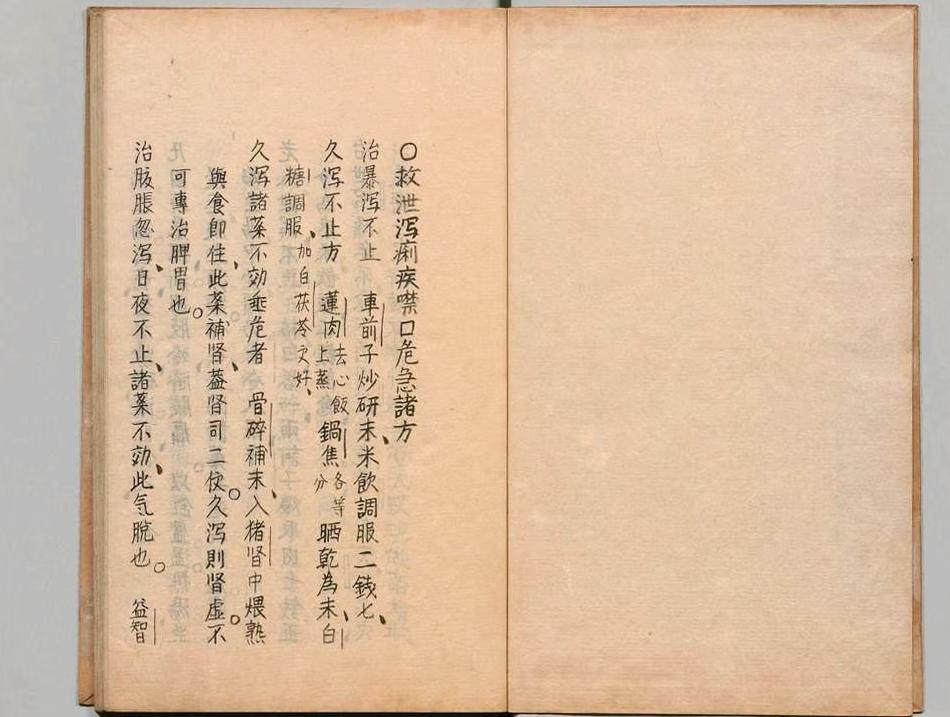 〇救泄泻痢疾噤口危急諸方
治暴泻不止 車前子炒研末、米飲調服二錢七、
久泻不止方 蓮肉去心飯上蒸鍋焦各等分晒乾為末、白
糖調服、加白茯苓更好、
久泻諸薬不効垂危者 骨碎補末、入猪肾中煨熟
與食即住、此薬補肾、葢肾司二便。久泻則肾虚。不
可專治脾胃也。
治腹脹忽泻、日夜不止、諸薬不効、此気脫也。 益智